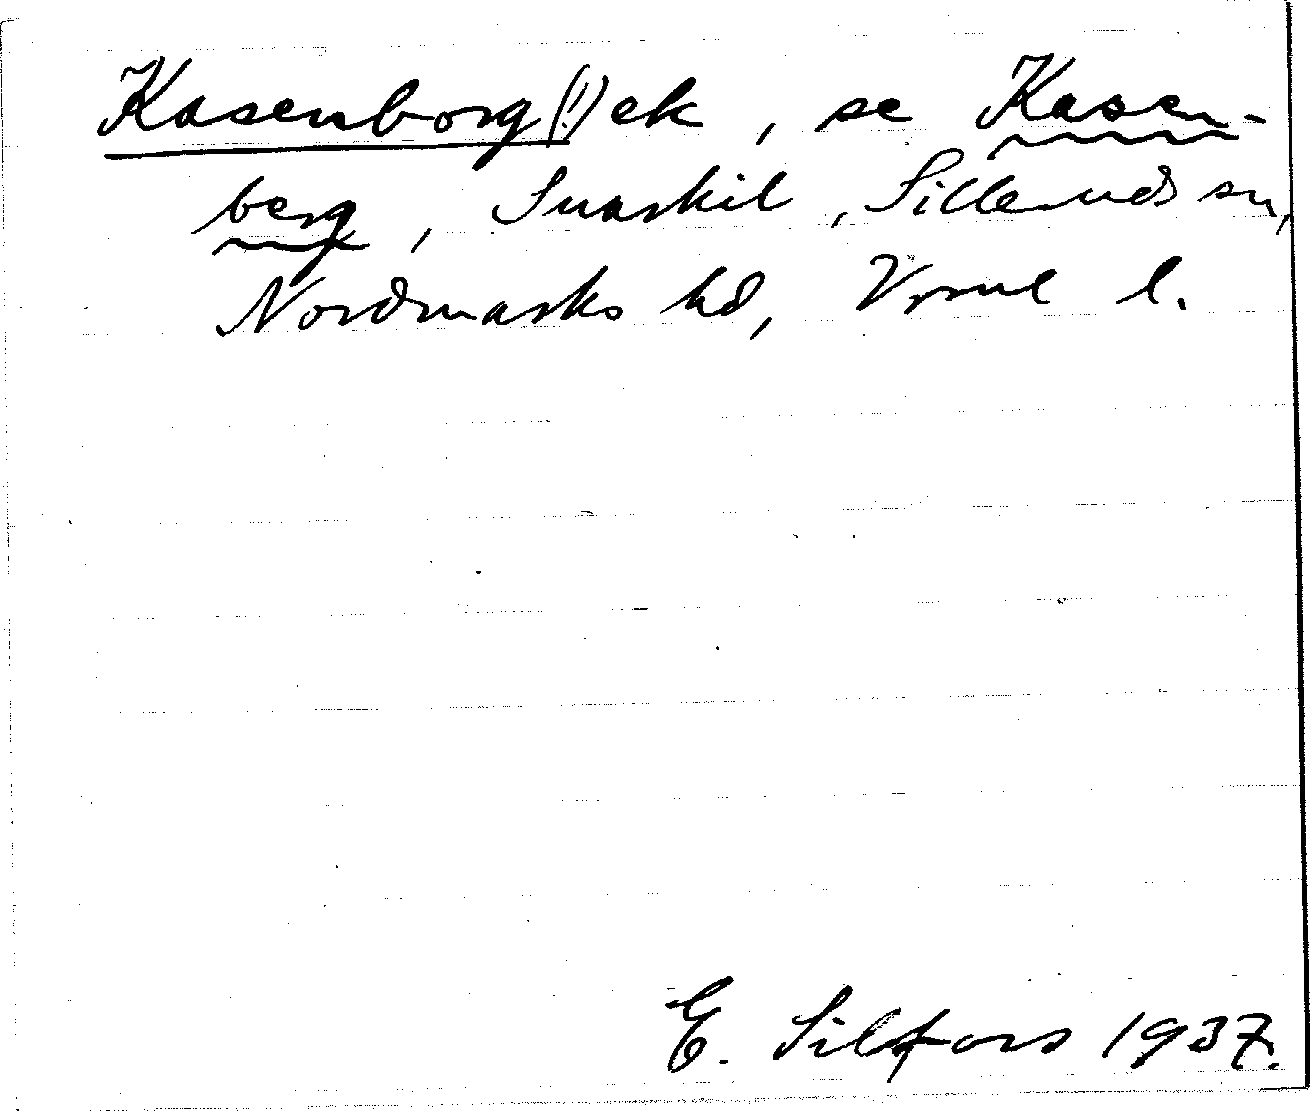 Kasenborg(!) ek, se Kasen-
berg, Snarkil, Sillerud sn,
Nordmarks hd, Vrml l.
E. Silfors 1937.